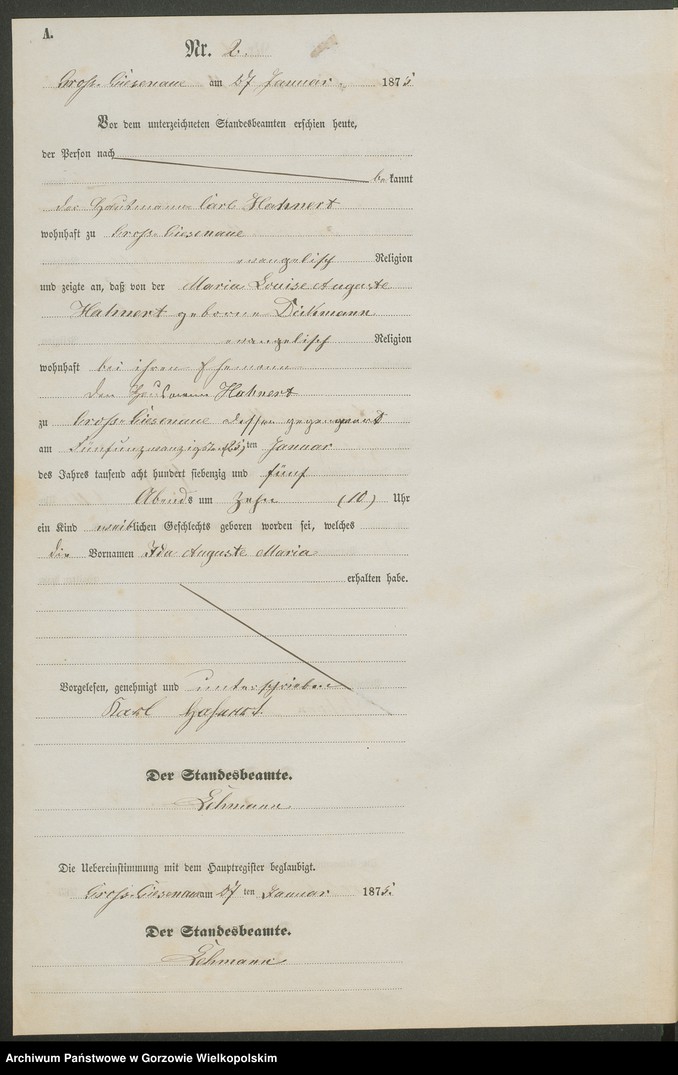 A.
Nr. 2.
Gross Ciesenaue am 27 Januar 1875
Vor dem unterzeichneten Standesbeamten erschien heute,
der Person nach
be kannt
der Carl Hahnert
wohnhaft zu Gross Ciesenaue
evangelisch Religion
und zeigte an, daß von der Maria Louise Auguste
Hahnert geborne
evangelisch Religion
wohnhaft bei ihren Ehemann
den Hahnert
zu Gross Ciesenaue gegenwart
am Januar
des Jahres tausend acht hundert siebenzig und fünf
Abends um zehn (10) Uhr
ein Kind weiblichen Geschlechts geboren worden sei, welches
die Vornamen Ida Auguste Maria
erhalten habe.
Vorgelesen, genehmigt und unterschrieben
Karl Hahnert
Der Standesbeamte.
Lehmann
Die Uebereinstimmung mit dem Hauptregister beglaubigt.
Gross Ciesenaue am 27 ten Januar 1875.
Der Standesbeamte.
Lehmann
Archiwum Państwowe w Gorzowie Wielkopolskim